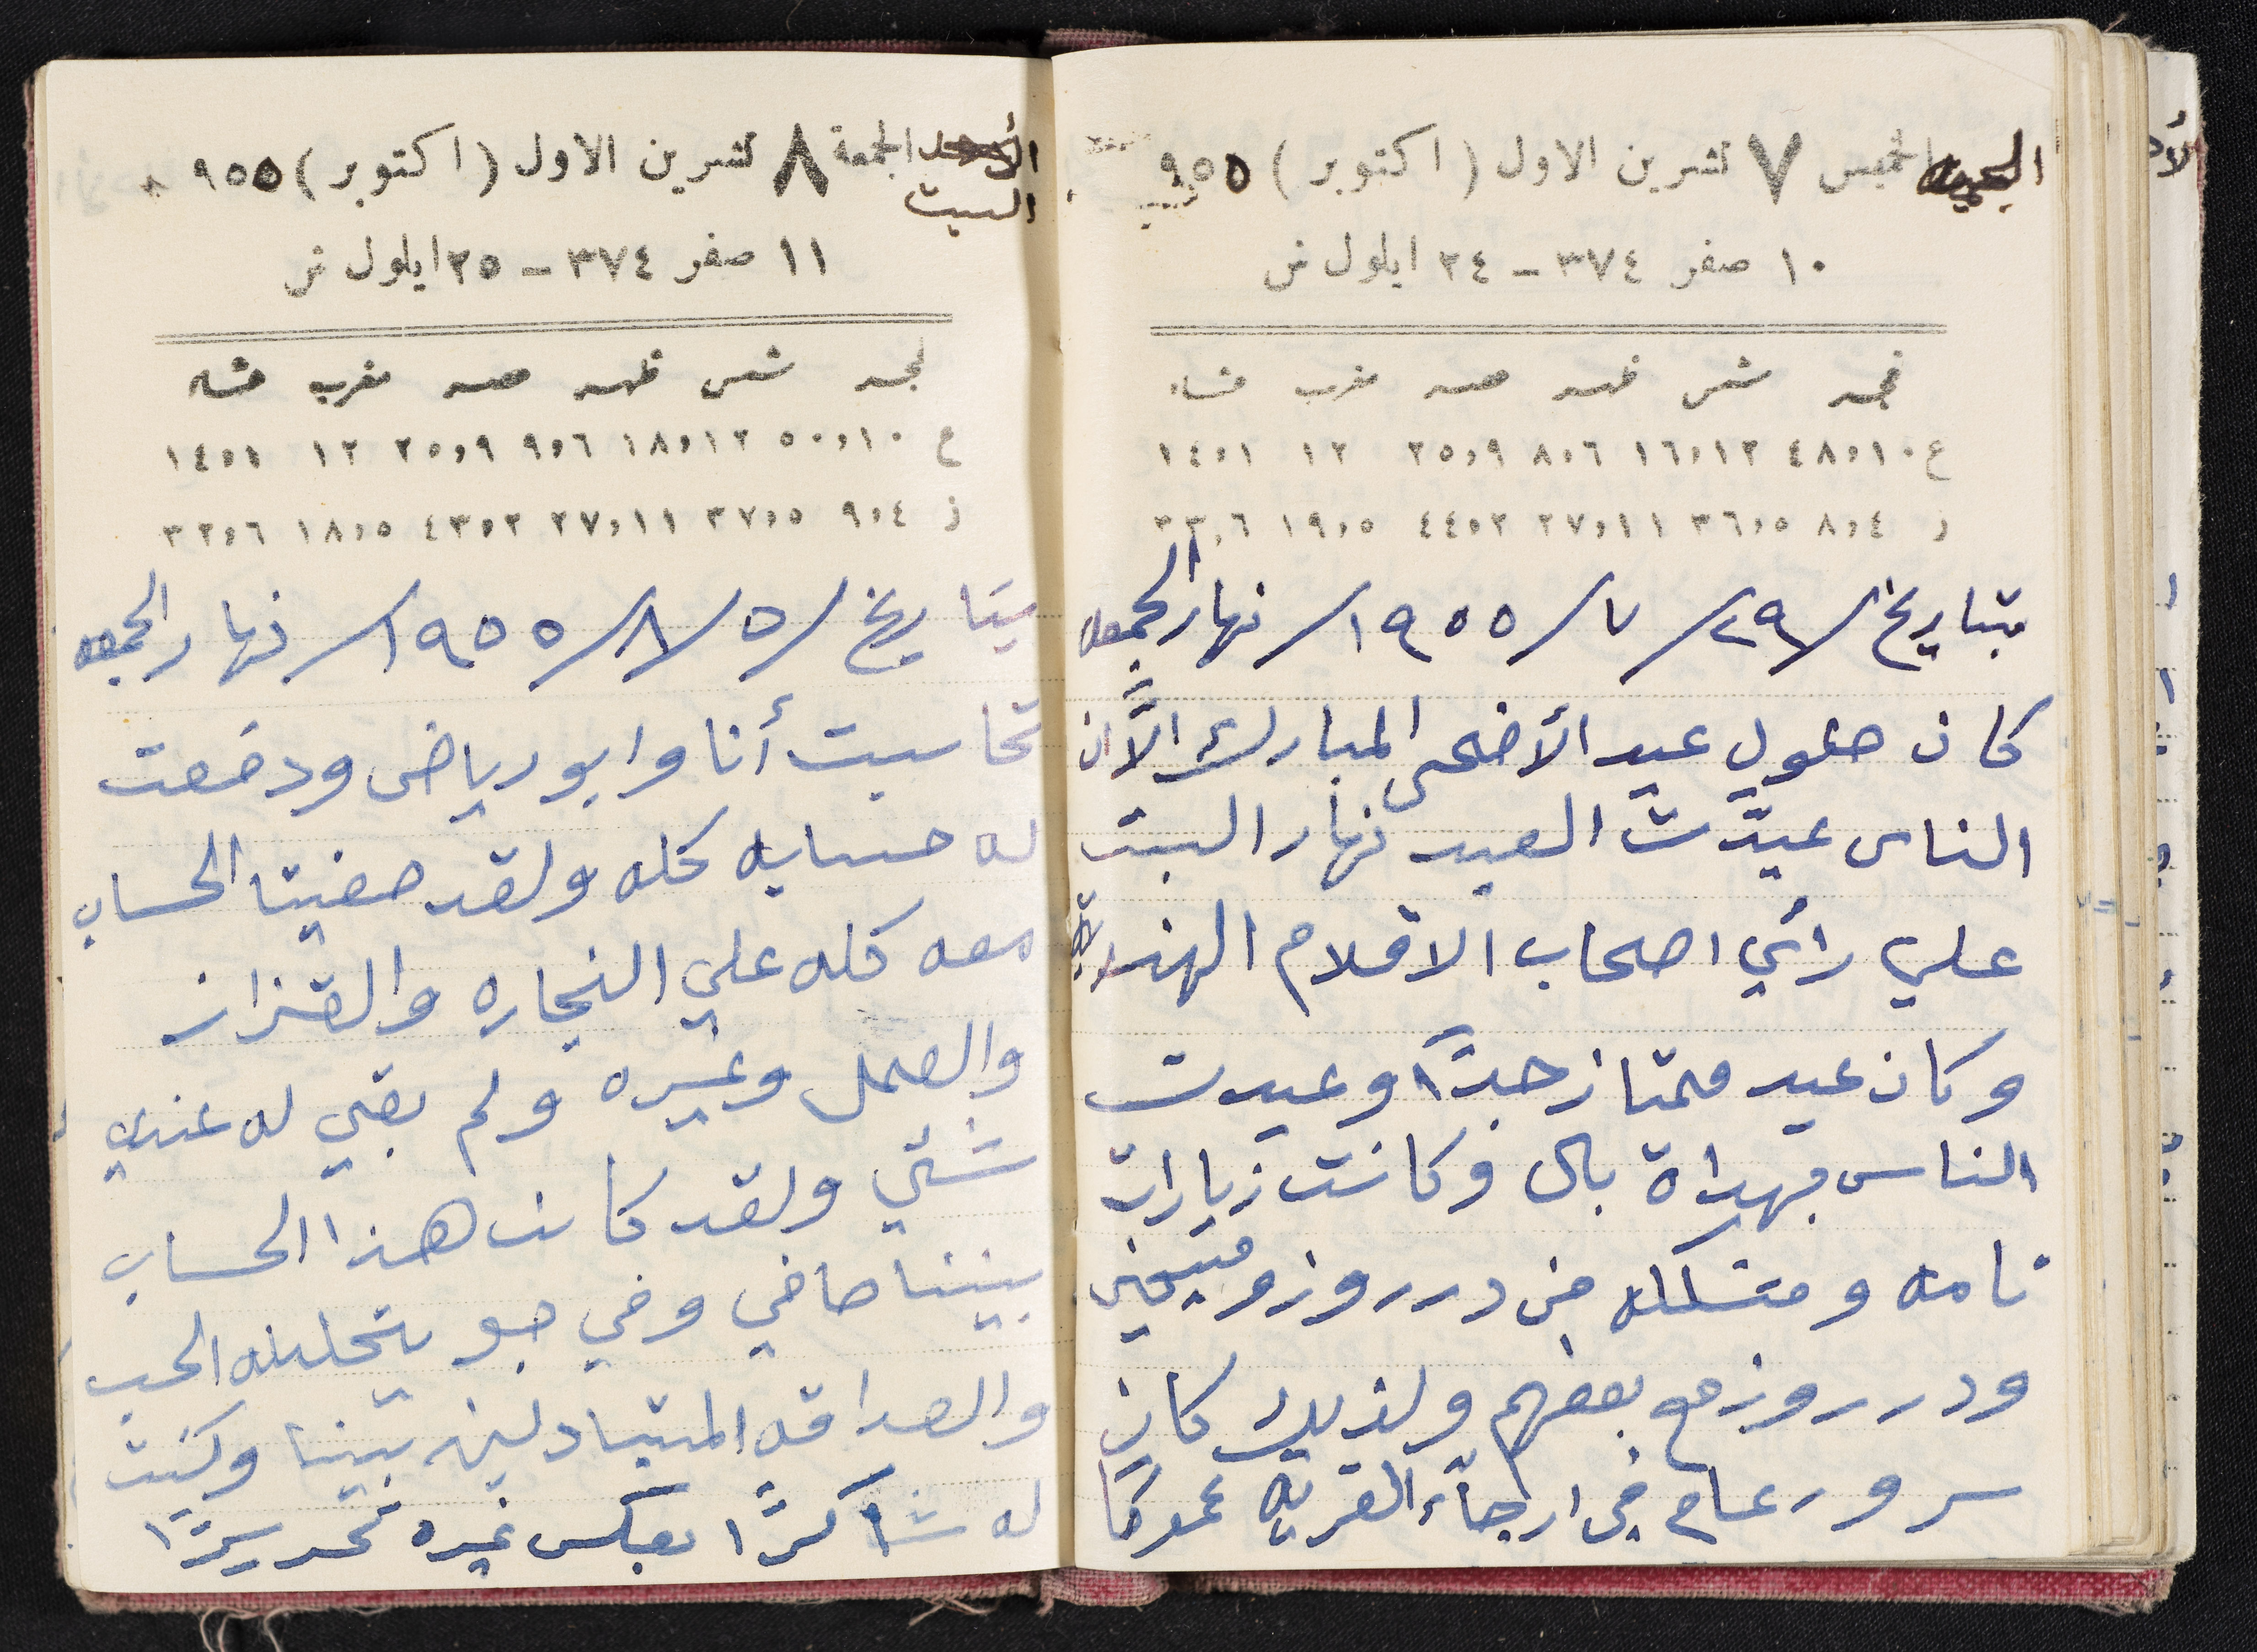 الخميس ٧ تشرين الاول (اكتوبر) ٩٥٥
١٠ صفر ٣٧٤ – ٢٤ ايلول ش
فجر شمس ظهر عصر مغرب عشاء
ع ٤٨،١٠ ١٦،١٢ ٨،٦ ٢٥،٩ ١٢ ١٤،١
ز ٨،٤ ٣٦،٥ ٢٧،١١ ٤٤،٢ ١٩،٥ ٣٣،٦
بتاريخ /٢٩/ ٧/ ١٩٥٥/ نهار الجمعه
كان حلول عيد الأضحى المبارك الّا ان
الناس عيدّت العيد نهار السبت
علي رأي اصحاب الاقلام
وكان عيد ممتاز جدًا وعيدت
الناس بهداة بال وكانت زيارات
تامه ومتشكله من دروز ومسيحيين
ودروز مع بعضهم ولذلك كان
سرور عام في ارجاء القريه عموما
الأحد الجمعة ٨ تشرين الاول (اكتوبر) ٩٥٥
السبت
١١ صفر ٣٧٤ – ٢٥ ايلول ش
فجر شمس ظهر عصر مغرب عشاء
ع ٥٠،١٠ ١٨،١٢ ٩،٦ ٢٥،٩ ١٢ ١٤،١
ز ٩،٤ ٣٧،٥ ٢٧،١١ ٤٣،٢ ١٨،٥ ٣٢،٦
بتاريخ /٥ /٨/ ١٩٥٥/ نهار الجمعه
تحاسبت أنا وابو رياض ودفعت
له حسابه كله ولقد صفيتا الحساب
معه كله علي النجاره والقزاز
والعمل وغيره ولم بقي له عندي
شئي ولقد كانت هذا الحساب
بيننا صافي وفي جو يتخلله الحب
والصداقه المتبادلين بيننا وكنت
له شاكرًا بعكس غيره تحريرًا